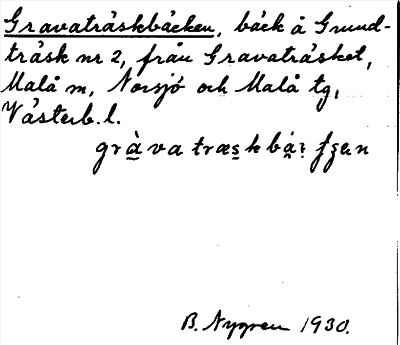 Gravaträskbäcken, bäck å Grund-
träsk nr 2, från Gravaträsket,
Malå m, Norsjö och Malå tg,
Västerb. l.
gràva træsk
B. Nygren 1930.